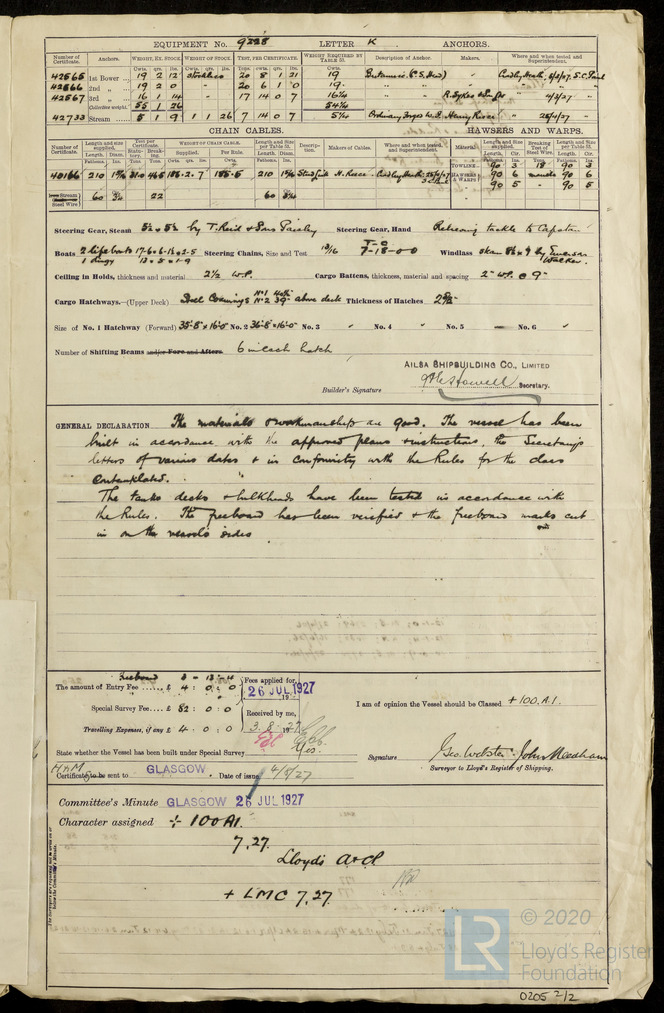 EQUIPMENT No. 9228 LETTER K ANCHORS.
Number of Certificate. Anchors. WEIGHT, EX. STOCK. WEIGHT OF STOCK. TEST, PER CERTIFICATE. WEIGHT REQUIRED BY TABLE 31. Description of Anchor. Makers. Where and when tested and Superintendent.
Cwts. qrs. lbs. Cwts. qrs. lbs. Tons. cwts. qrs. lbs. Cwts.
42565 1st Bower 19 2 12 stockless 20 8 1 21 19
42566 2nd „ 19 2 0 - 20 6 1 0 19
42567 3rd „ 16 1 14 17 14 0 7 16¼ R. Sykes & Son 4/3/27
Collective weight 55 1 26 54¼
42733 Stream 5 1 9 1 1 26 7 14 0 7 5¼ Henry Reece
CHAIN CABLES. HAWSERS AND WARPS.
Number of Certificate. Length and size supplied. Test per Certificate. WEIGHT OF CHAIN CABLE. Length and Size per Table 31. Description. Makers of Cables. Where and when tested, and Superintendent. Material. Length and Size supplied. Breaking Test of Steel Wire. Length and Size per Table 31.
40166 210 185·2·7 210 Stud link H. Reece
TOWLINE 90 3 18 90 3
HAWSERS & WARPS 90 6 90 6
90 5 90 5
Iron Stream or Steel Wire 60 22 60
Steering Gear, Steam 5½ x 5½ by T. Reid & Sons Paisley Steering Gear, Hand Relieving tackle to Capstan
Boats 2 lifeboats Steering Chains, Size and Test 13/16 7-18-0-0 Windlass by Emerson Walker.
1 dingy
Ceiling in Holds, thickness and material 2½ W.P. Cargo Battens, thickness, material and spacing 2" W.P. 9"
Cargo Hatchways.—(Upper Deck) Steel Coamings No 1 No 2 39" above deck Thickness of Hatches 2½"
Size of No. 1 Hatchway (Forward) 35'-8" x 16'-0" No. 2 36'-8" x 16'-0" No. 3 „ No. 4 „ No. 5 — No. 6 „
Number of Shifting Beams and/or Fore and Afters 6 in each hatch
AILSA SHIPBUILDING CO., LIMITED
Builder's Signature Secretary.
GENERAL DECLARATION The materials & workmanship are good. The vessel has been
built in accordance with the approved plans & instructions, the Secretary's
letters of various dates & in conformity with the Rules for the class
contemplated.
The tanks decks & bulkheads have been tested in accordance with
the Rules. The freeboard has been verified & the freeboard marks cut
in on the vessel's sides
Freeboard
The amount of Entry Fee ...... £ 4 : 0 : 0
Fees applied for,
26 JUL 1927
Special Survey Fee .... £ 82 : 0 : 0
Received by me,
Travelling Expenses, if any £ 4 · 0 : 0
3.8.27
I am of opinion the Vessel should be Classed +100.A.1.
State whether the Vessel has been built under Special Survey Yes.
Signature Geo. Webster John Needham
Surveyor to Lloyd's Register of Shipping.
Certificate to be sent to GLASGOW Date of issue 4/8/27
Committee's Minute GLASGOW 26 JUL 1927
Character assigned + 100A1.
7,27.
Lloyd's A&CP
+ LMC 7,27
LR
© 2020
Lloyd's Register
Foundation
0205 2/2